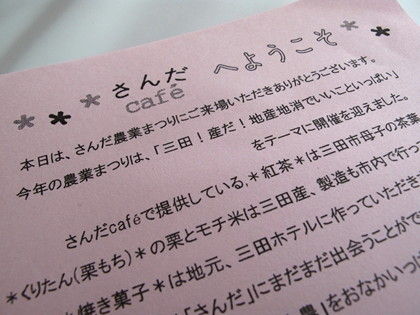 ＊＊＊さんだcafé へようこそ＊＊＊
本日は、さんだ農業まつりにご来場いただきありがとうございます。
今年の農業まつりは、「三田！産だ！地産地消でいいといっぱい」
をテーマに開催を迎えました。
さんだcaféで提供している,＊紅茶＊は三田市母子の茶葉
＊くりたん(栗もち)＊の栗とモチ米は三田産、製造も市内で行っ
焼き菓子＊は地元、三田ホテルに作っていただき
「さんだ」にまだまだ出会うことがで
」をおなかいっ